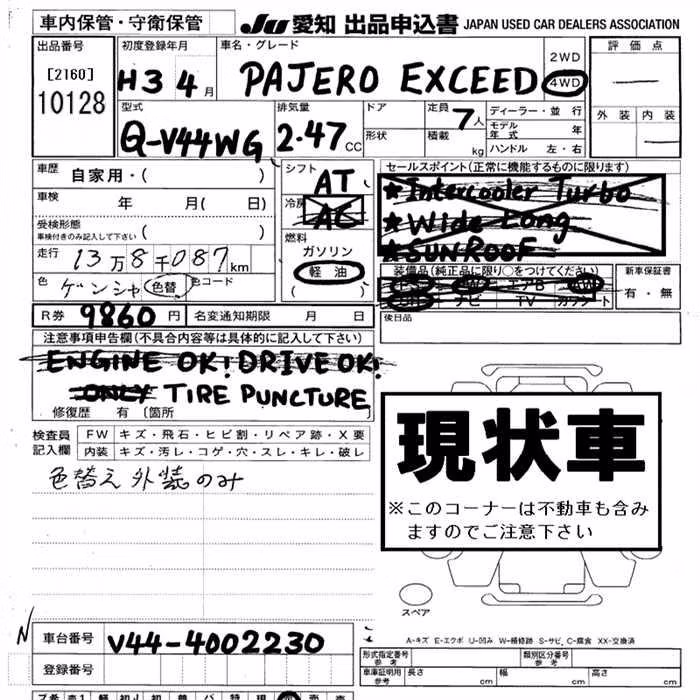 車内保管・守衛保管
JU 愛知 出品申込書 JAPAN USED CAR DEALERS ASSOCIATION
出品番号 初度登録年月 車名・グレード 2WD 評価点
[2160] H3 4月 PAJERO EXCEED 4WD
10128
外装 内装
型式 排気量 ドア 定員 7人 ディーラー・並行
Q-V44WG 2.47CC 形状 積載 kg モデル年式 年
ハンドル 左・右
車歴 自家用・( ) シフト AT セールスポイント(正常に機能するものに限ります)
車検 年 月( 日) 冷房 AC ★Intercooler Turbo
★Wide Long
受検形態 ( ) 燃料 ★SUNROOF
車検付きのみ記入して下さい
走行 13万8千087km ガソリン
色 ゲンシャ 色替 色コード ( ) 軽油
装備品(純正品に限り○をつけてください) 新車保証書
エアB
ナビ TV 有・無
R券 9860円 名変通知期限 月 日 後日品
注意事項申告欄(不具合内容等は具体的に記入して下さい)
ENGINE OK! DRIVE OK!
ONLY TIRE PUNCTURE
修復歴 有〔箇所 〕
検査員記入欄 FW キズ・飛石・ヒビ割・リペア跡・X要
内装 キズ・汚レ・コゲ・穴・スレ・キレ・破レ
色替え外装のみ
現状車
※このコーナーは不動車も含み
ますのでご注意下さい
スペア
N
車台番号 V44-4002230
A-キズ E-エクボ U-凹み W-補修跡 S-サビ C-腐食 XX-交換済
登録番号
形式指定番号 参考 類別区分番号 参考
車庫証明用 参考 長さ 幅 高さ